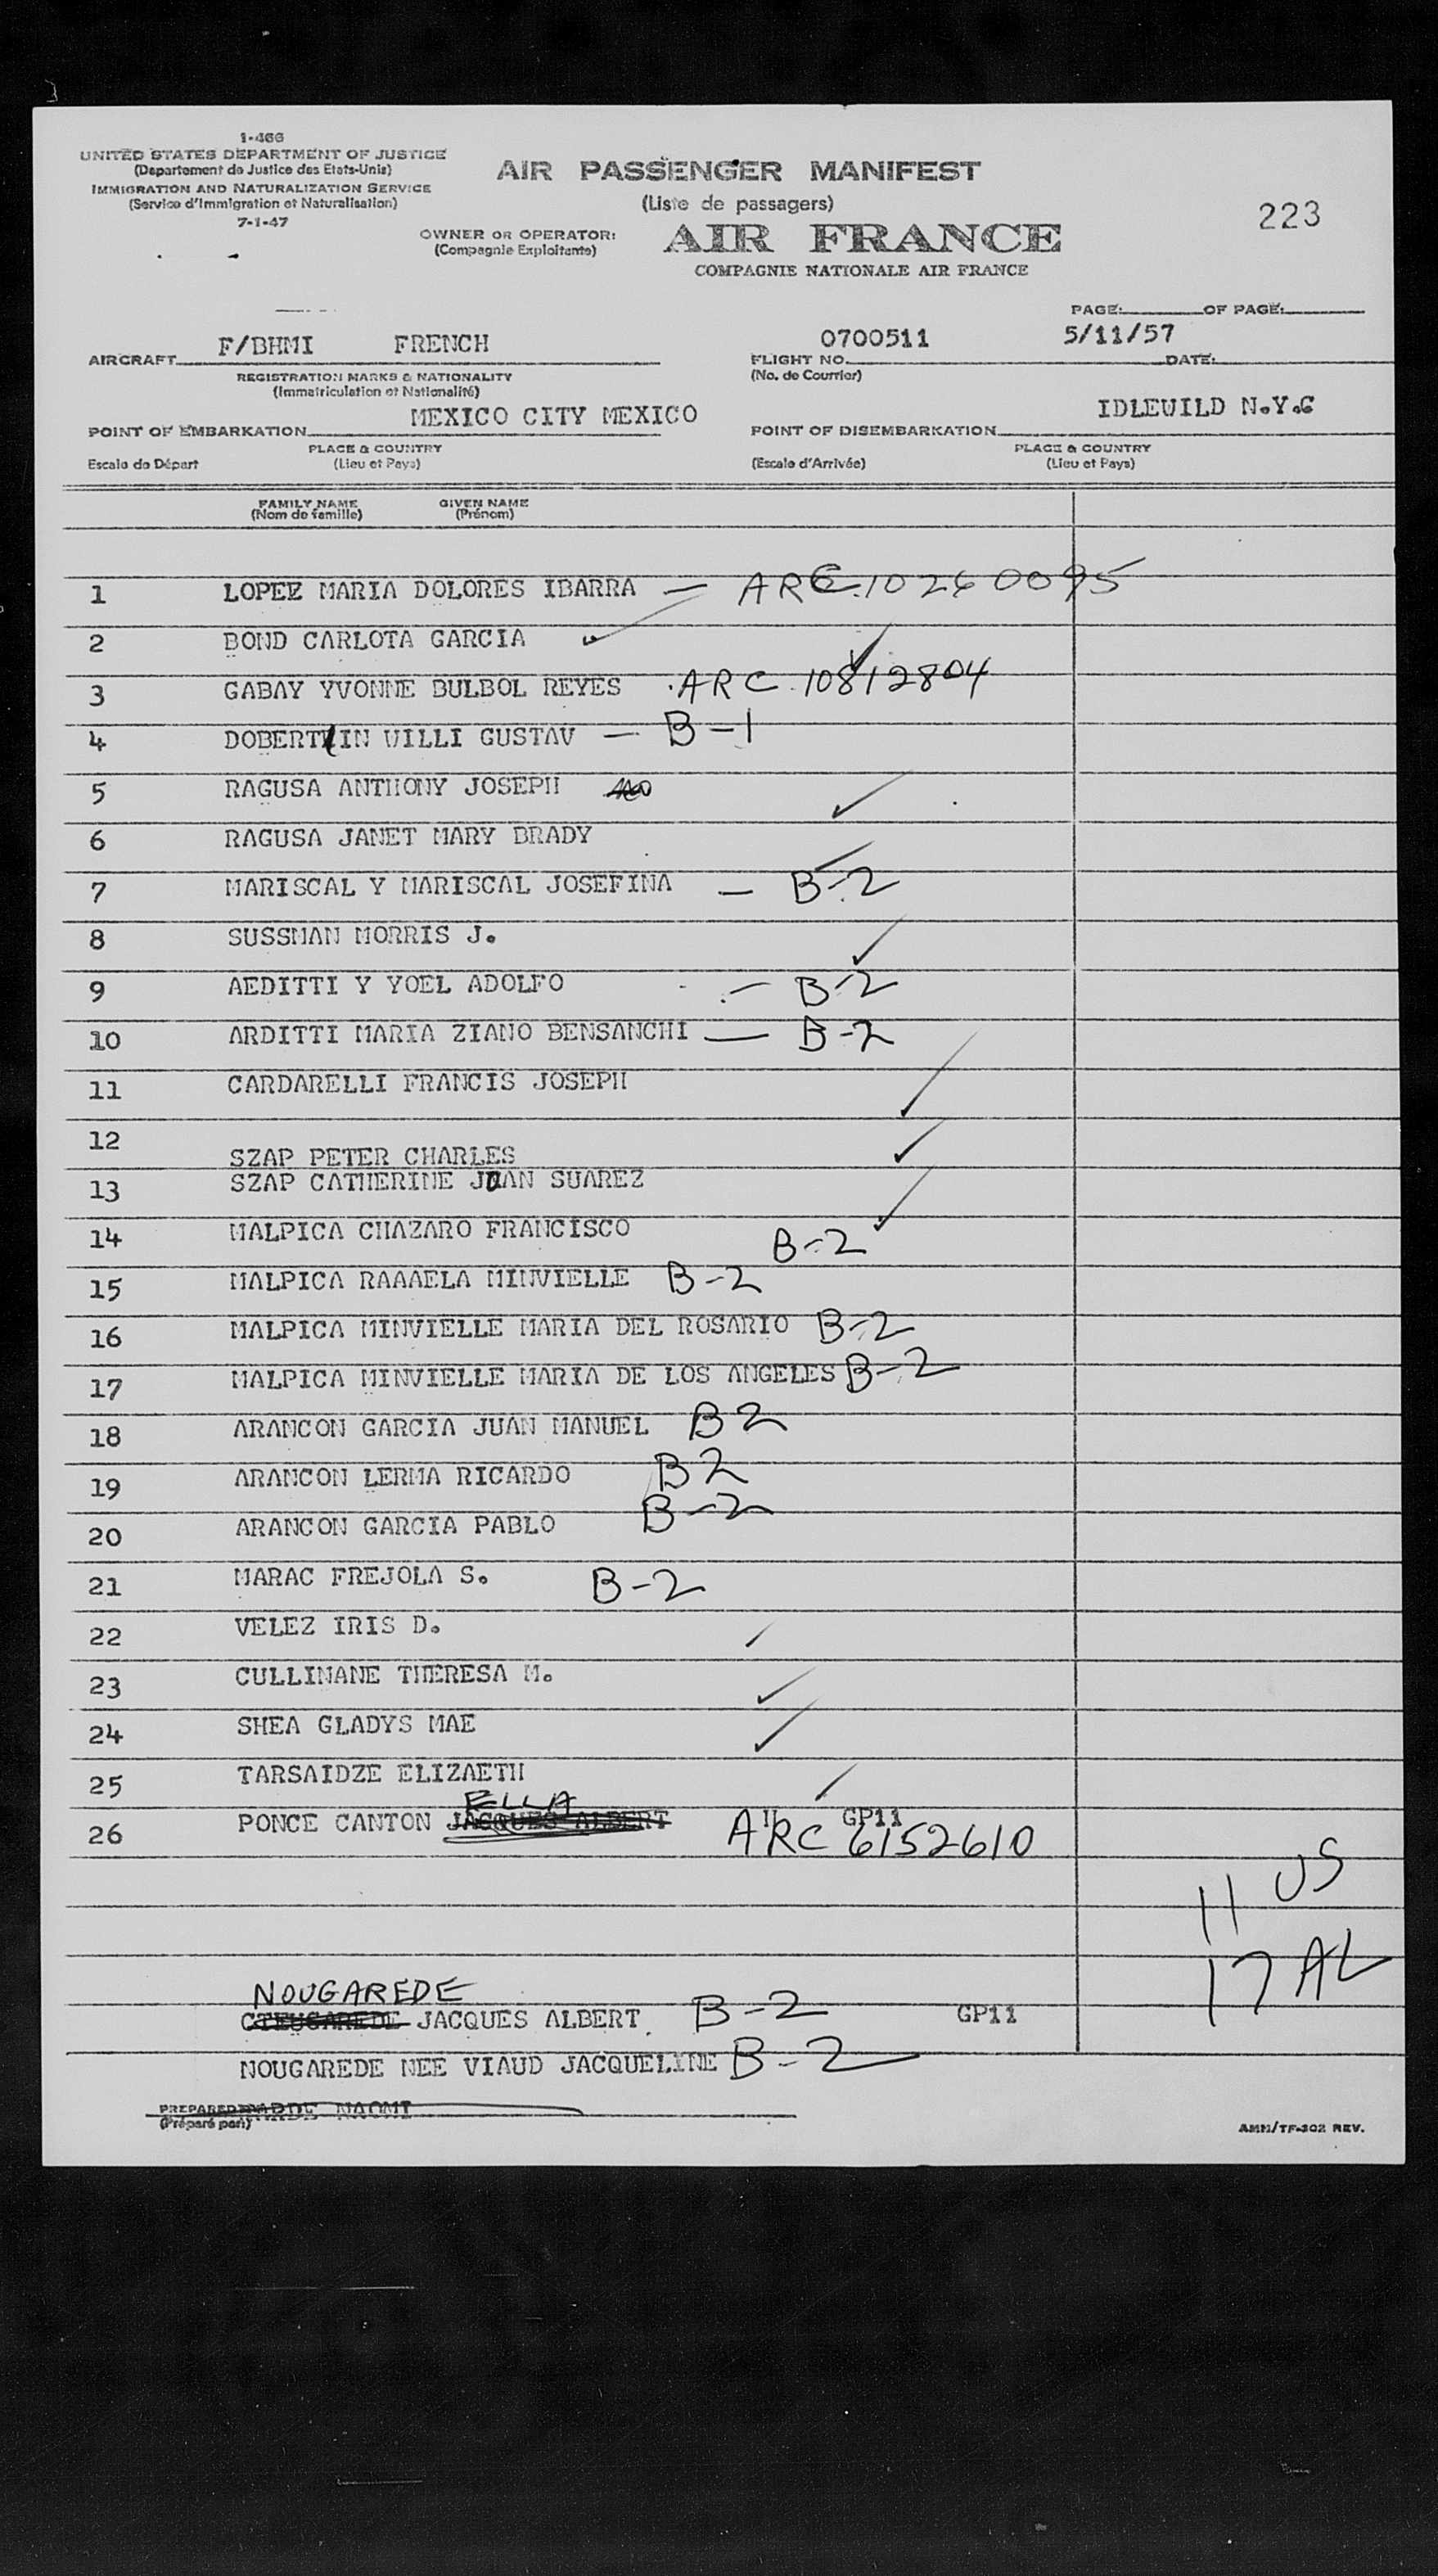 1-466
UNITED STATES DEPARTMENT OF JUSTICE
(Departement de Justice des Etats-Unis)
IMMIGRATION AND NATURALIZATION SERVICE
(Service d'Immigration et Naturalisation)
7-1-47
AIR PASSENGER MANIFEST
(Liste de passagers)
223
OWNER OR OPERATOR: AIR FRANCE
(Compagnie Exploitante)
COMPAGNIE NATIONALE AIR FRANCE
PAGE: OF PAGE:
AIRCRAFT F/BHMI FRENCH FLIGHT NO. 0700511 DATE: 5/11/57
REGISTRATION MARKS & NATIONALITY (No. de Courrier)
(Immatriculation et Nationalité)
POINT OF EMBARKATION MEXICO CITY MEXICO POINT OF DISEMBARKATION IDLEWILD N.Y.C
PLACE & COUNTRY PLACE & COUNTRY
Escale de Départ (Lieu et Pays) (Escale d'Arrivée) (Lieu et Pays)
FAMILY NAME GIVEN NAME
(Nom de famille) (Prénom)
1 LOPEZ MARIA DOLORES IBARRA — ARC 10260095
2 BOND CARLOTA GARCIA ✓
3 GABAY YVONNE BULBOL REYES ARC 10812804
4 DOBERTLIN WILLI GUSTAV — B-1
5 RAGUSA ANTHONY JOSEPH ✓
6 RAGUSA JANET MARY BRADY
7 MARISCAL Y MARISCAL JOSEFINA — B-2
8 SUSSMAN MORRIS J. ✓
9 AEDITTI Y YOEL ADOLFO — B-2
10 ARDITTI MARIA ZIANO BENSANCHI — B-2
11 CARDARELLI FRANCIS JOSEPH ✓
12 SZAP PETER CHARLES ✓
13 SZAP CATHERINE JOAN SUAREZ ✓
14 MALPICA CHAZARO FRANCISCO B-2
15 MALPICA RAAAELA MINVIELLE B-2
16 MALPICA MINVIELLE MARIA DEL ROSARIO B-2
17 MALPICA MINVIELLE MARIA DE LOS ANGELES B-2
18 ARANCON GARCIA JUAN MANUEL B2
19 ARANCON LERMA RICARDO B2
20 ARANCON GARCIA PABLO B-2
21 MARAC FREJOLA S. B-2
22 VELEZ IRIS D. ✓
23 CULLINANE THERESA M. ✓
24 SHEA GLADYS MAE ✓
25 TARSAIDZE ELIZAETH ✓
ELLA
26 PONCE CANTON JACQUES ALBERT ARC 6152610 GP11
11 US
17 AL
NOUGAREDE
JACQUES ALBERT B-2 GP11
NOUGAREDE NEE VIAUD JACQUELINE B-2
PREPARED NAOMI
(Préparé par)
AMN/TF-302 REV.